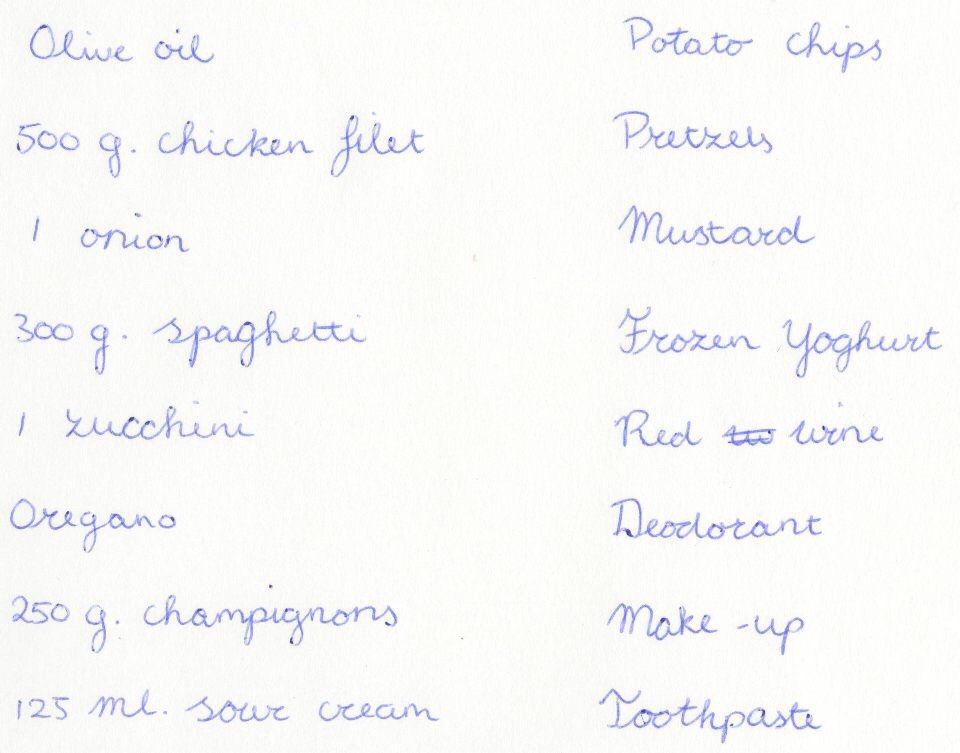 Olive oil
500 g. chicken filet
1 onion
300 g. spaghetti
1 zucchini
Oregano
250 g. champignons
125 ml. sour cream
Potato chips
Pretzels
Mustard
Frozen Yoghurt
Red wine
Deodorant
Make-up
Toothpaste